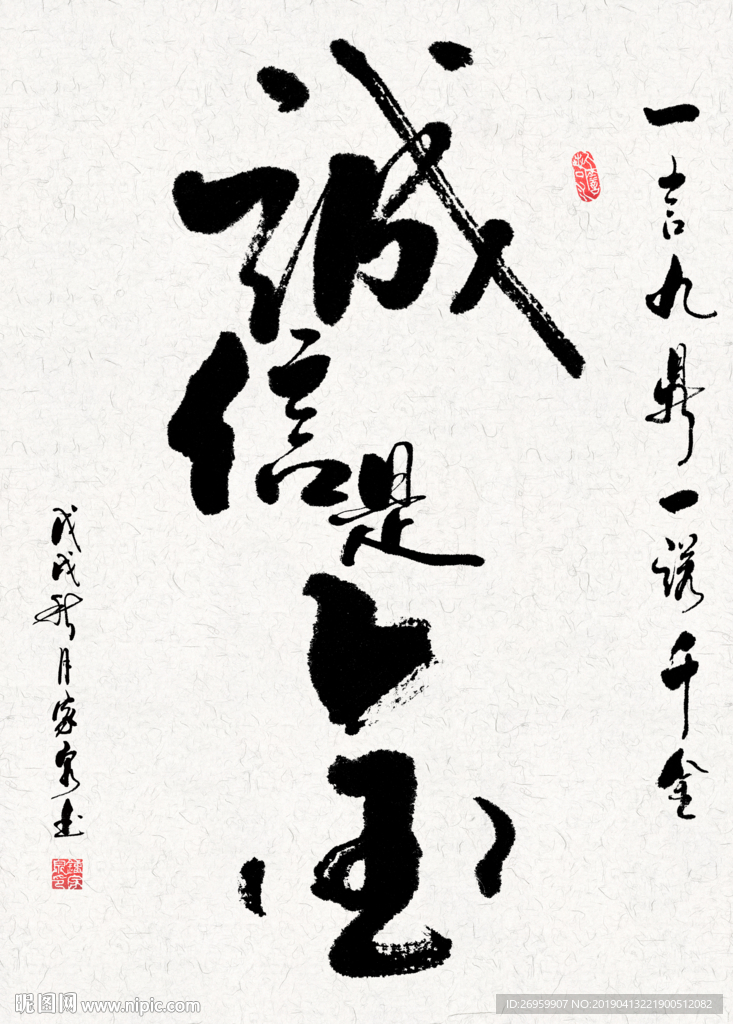 一言九鼎一诺千金
誠信是金
戊戌秋月家泉書
昵图网 www.nipic.com
ID:26959907 NO:20190413221900512082